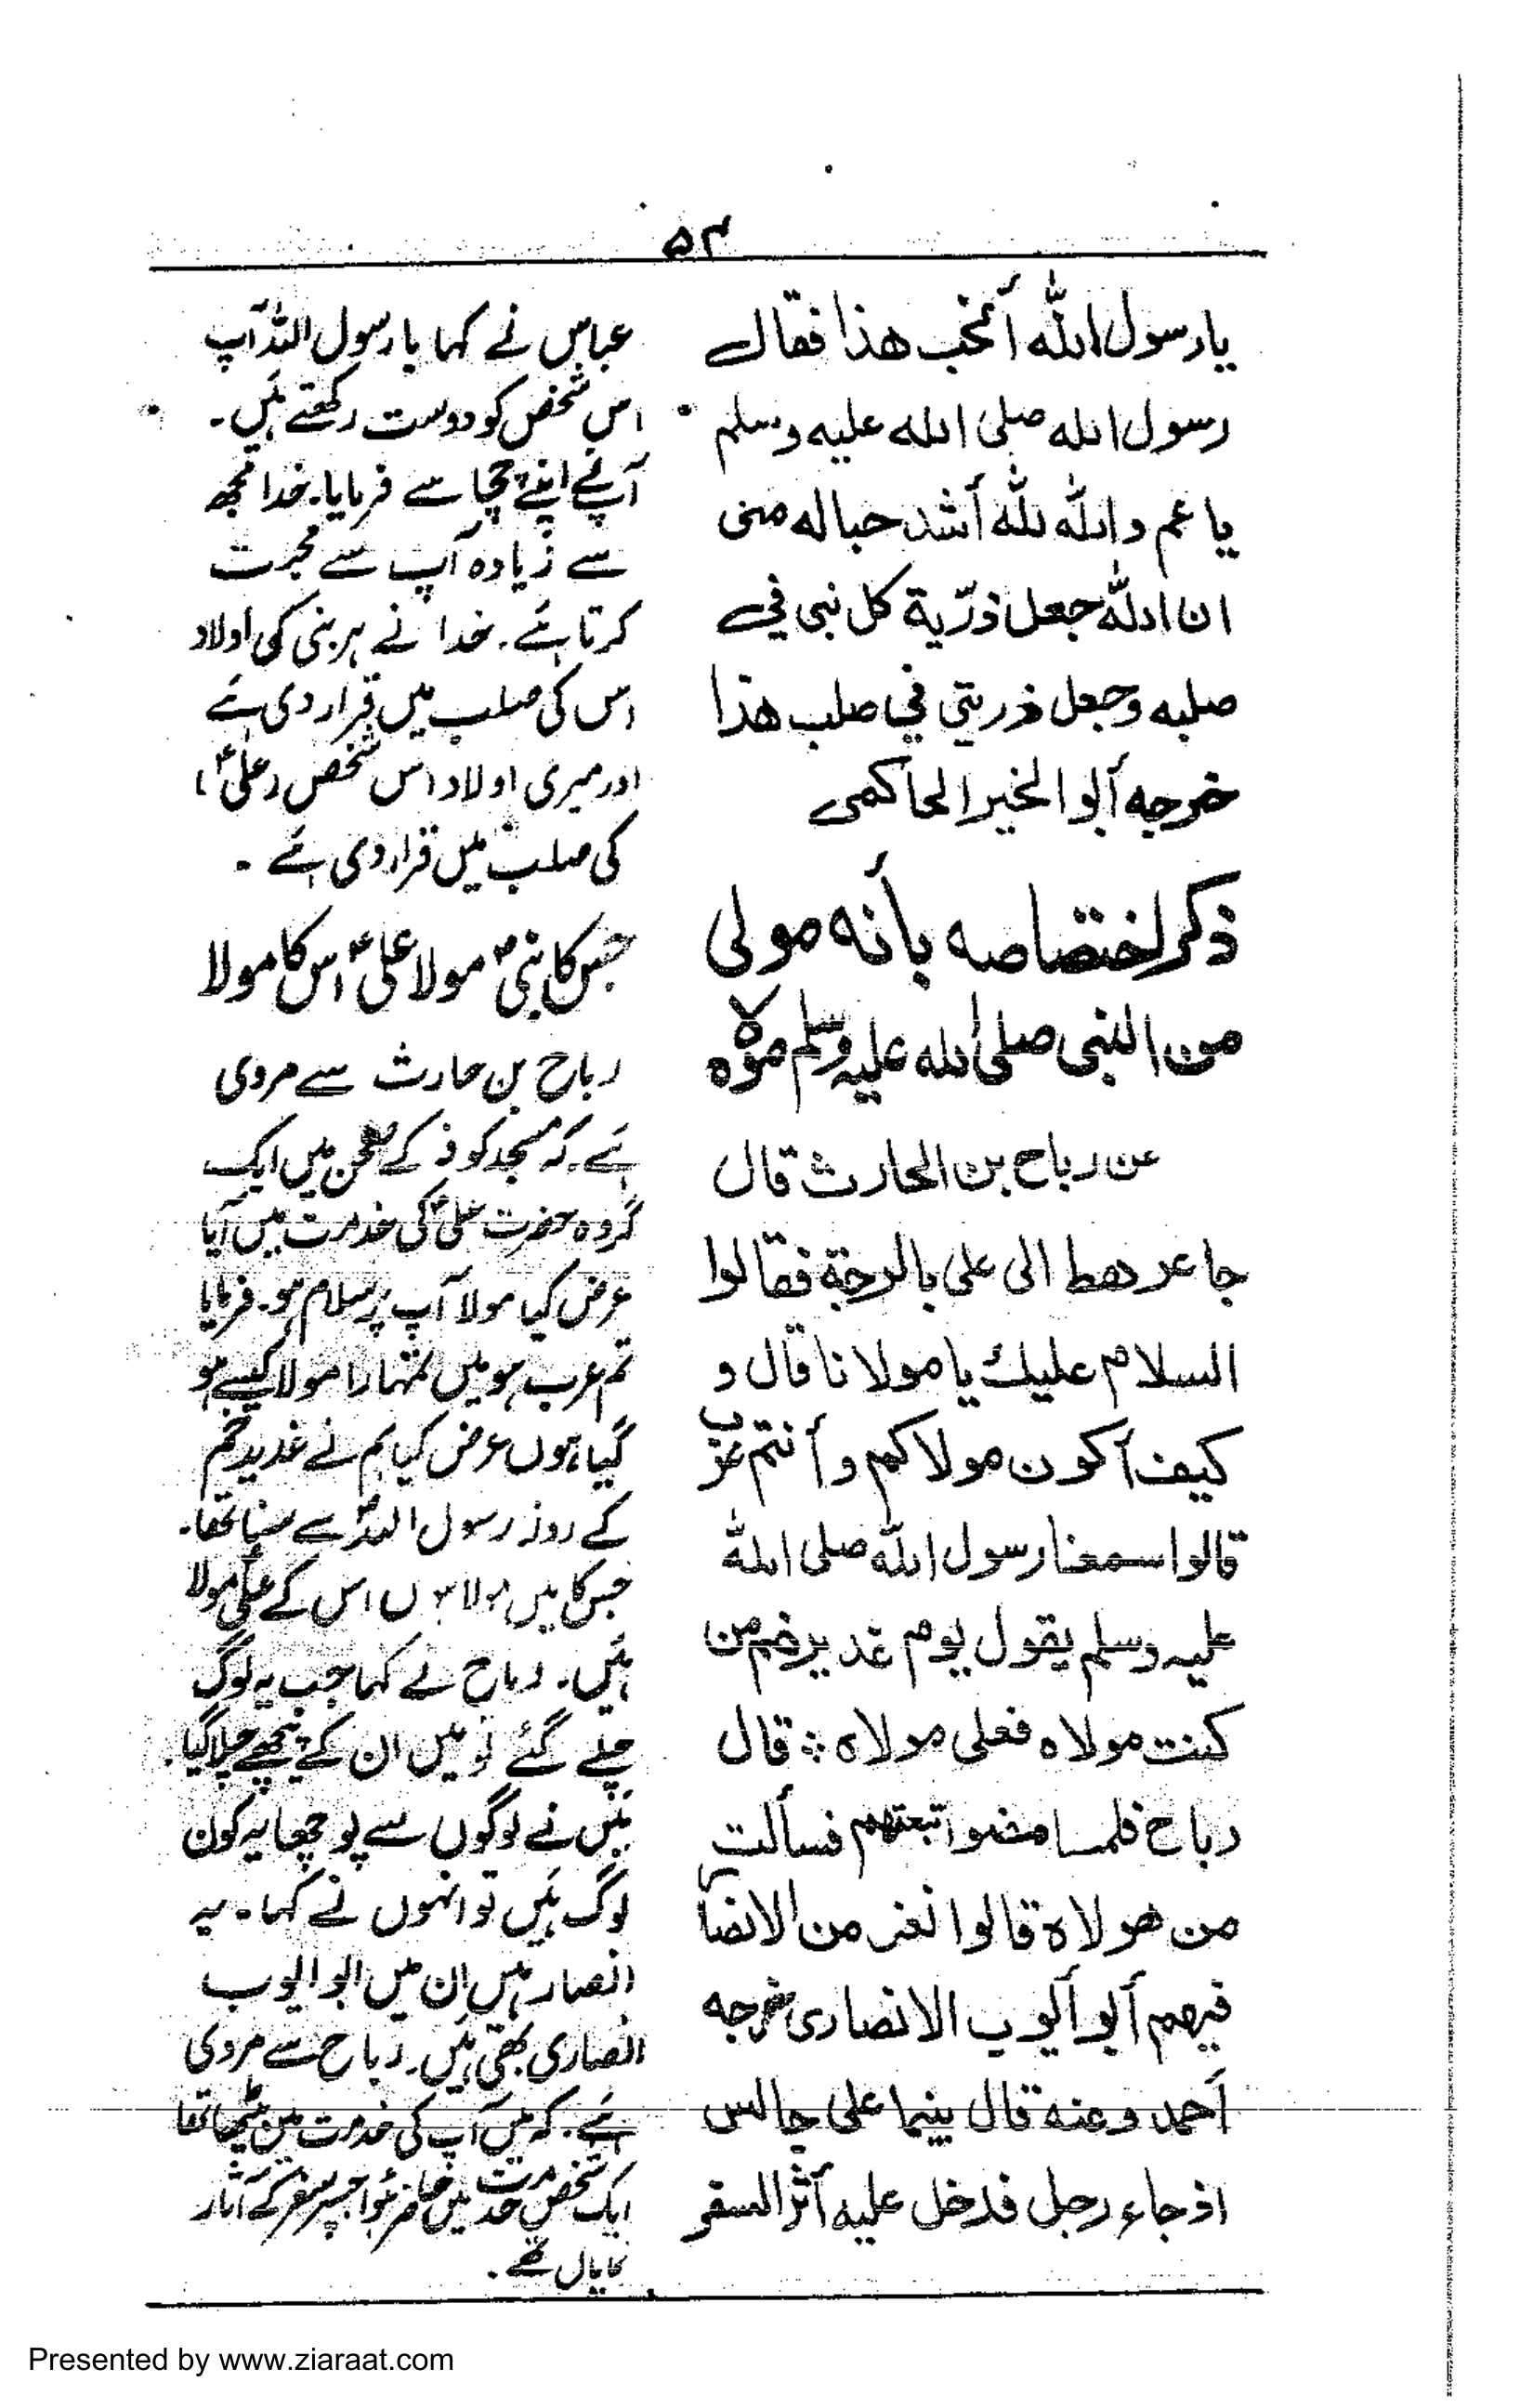 ۵۴
يا رسول الله أتحب هذا فقال
رسول الله صلى الله عليه وسلم
يا عم والله لله أشد حبا له منى
ان الله جعل ذرّية كل نبى في
صلبه وجعل ذريتي في صلب هذا
خرجه أبو الخير الحاكمى
ذكر اختصاصه بأنه مولى
من النبى صلى الله عليه وسلم مولاه
عن رباح بن الحارث قال
جاء رهط الى على بالرحبة فقالوا
السلام عليك يا مولانا قال و
كيف أكون مولاكم وأنتم عرب
قالوا سمعنا رسول الله صلى الله
عليه وسلم يقول يوم غدير خم من
كنت مولاه فعلى مولاه ؞ قال
رباح فلما مضوا تبعتهم فسألت
من هولاء قالوا نفر من الانصا
فيهم أبو أيوب الانصارى خرجه
أحمد وعنه قال بينما على جالس
اذ جاء رجل فدخل عليه أثر السفر
عباس نے کہا یا رسول اللہ آپ
اس شخص کو دوست رکھتے ہیں۔
آپ نے اپنے چچا سے فرمایا۔ خدا مجھ
سے زیادہ آپ سے محبت
کرتا ہے۔ خدا نے ہر نبی کی اولاد
اس کی صلب میں قرار دی ہے
اور میری اولاد اس شخص (علیؑ)
کی صلب میں قرار دی ہے۔
جس کا نبیؐ مولا علیؑ اس کا مولا
رباح بن حارث سے مروی
ہے۔ کہ مسجد کوفہ کے صحن میں ایک
گروہ حضرت علیؑ کی خدمت میں آیا
عرض کیا مولا آپ پر سلام ہو۔ فرمایا
تم عرب ہو میں تمہارا مولا کیسے ہو
گیا ہوں عرض کیا ہم نے غدیر خم
کے روز رسول اللہؐ سے سنا تھا۔
جس کا میں مولا ہوں اس کے علیؑ مولا
ہیں۔ رباح نے کہا جب یہ لوگ
چلے گئے تو میں ان کے پیچھے چلا گیا۔
میں نے لوگوں سے پوچھا یہ کون
لوگ ہیں تو انہوں نے کہا۔ یہ
انصار ہیں ان میں ابو ایوب
انصاری بھی ہیں۔ رباح سے مروی
ہے۔ کہ میں آپ کی خدمت میں بیٹھا تھا
ایک شخص خدمت میں حاضر ہوا جس پر سفر کے آثار
نمایاں تھے۔
Presented by www.ziaraat.com